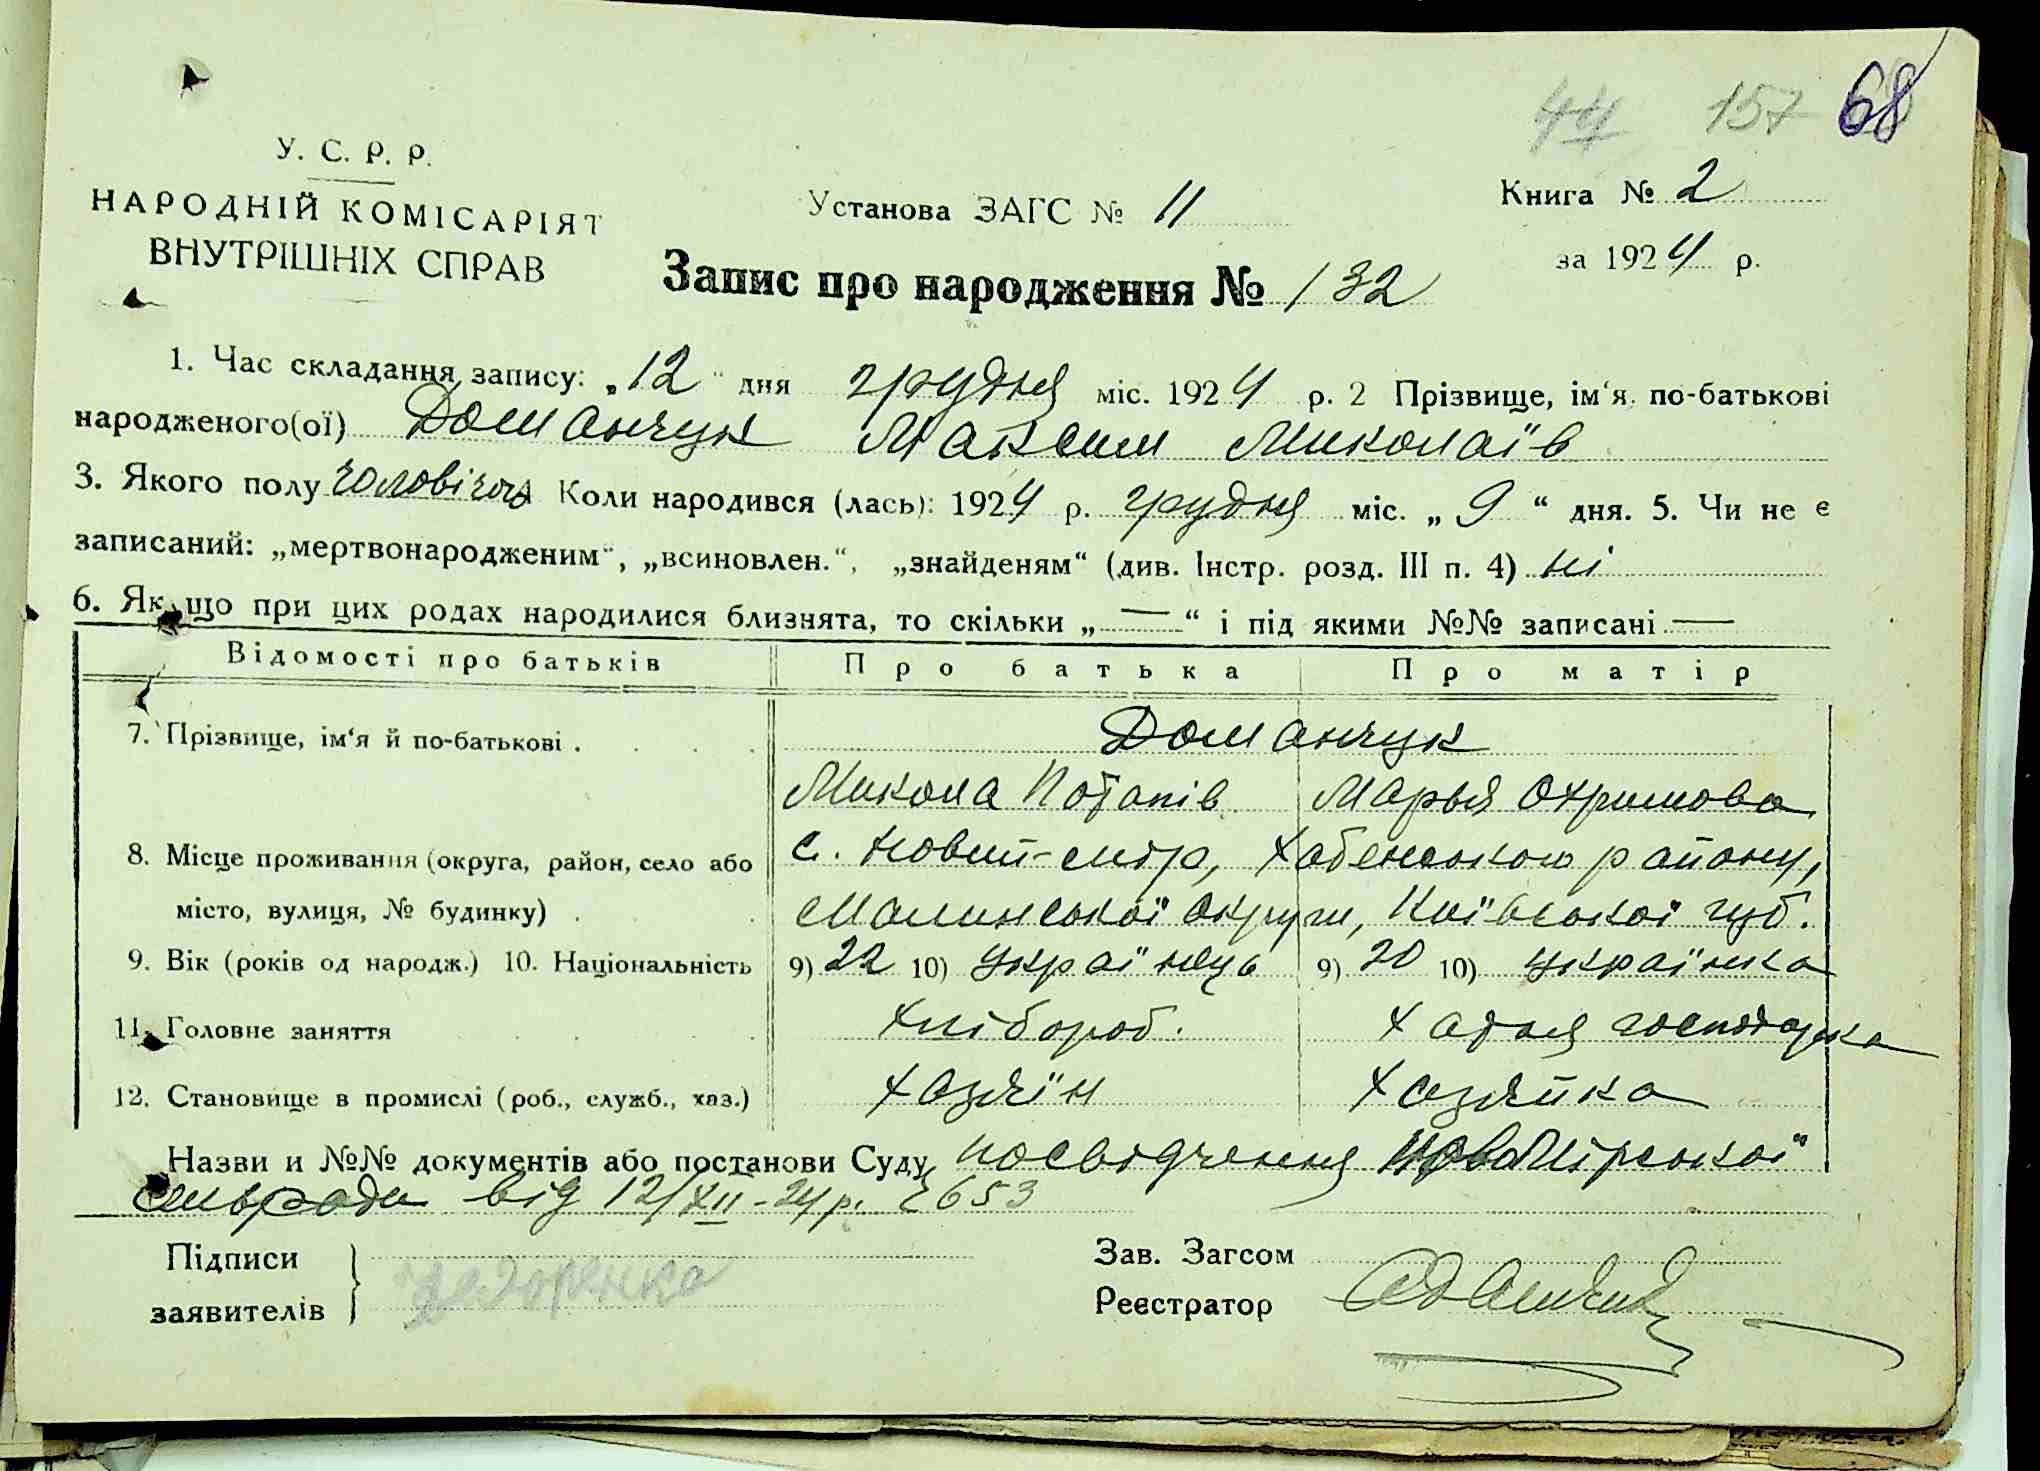 44 157 68
У. С. Р. Р.
НАРОДНІЙ КОМІСАРІЯТ
ВНУТРІШНІХ СПРАВ
Установа ЗАГС № 11
Книга № 2
за 1924 р.
Запис про народження № 132
1. Час складання запису: „12“ дня грудня міс. 1924 р. 2 Прізвище, ім‘я, по-батькові
народженого(ої) Доманчук Максим Миколаїв
3. Якого полу чоловічого Коли народився (лась): 1924 р. грудня міс. „9“ дня. 5. Чи не є
записаний: „мертвонародженим“, „всиновлен.“, „знайденям“ (див. Інстр. розд. III п. 4) ні
6. Якщо при цих родах народилися близнята, то скільки „—“ і під якими №№ записані —
Відомості про батьків Про батька Про матір
7. Прізвище, ім‘я й по-батькові . . . . Доманчук
Микола Потапів Марья Охримова
8. Місце проживання (округа, район, село або с. Новий-мир, Хабенського району,
місто, вулиця, № будинку) . . Малинської округи, Київської губ.
9. Вік (років од народж.) 10. Національність 9) 22 10) Українець 9) 20 10) українка
11. Головне заняття хлібороб. хатня господарка
12. Становище в промислі (роб., служб., хаз.) хазяїн хазяйка
Назви и №№ документів або постанови Суду посвідчення Новомірської
сільради від 12/XII-24 р. № 653
Підписи
заявителів
Зав. Загсом
Реєстратор